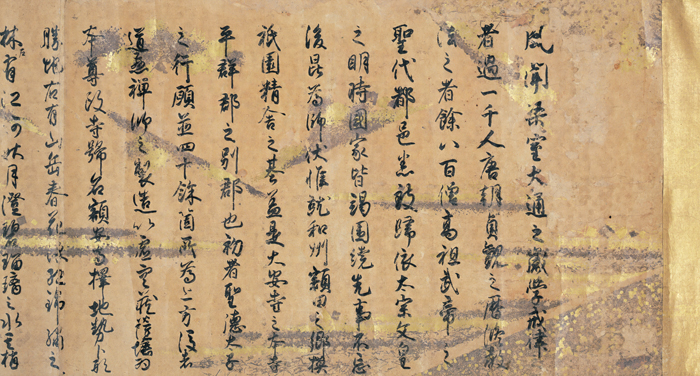 風聞梁室大通之歳學戒律
者過一千人唐朝貞觀之暦弘教
法之者餘八百僧高祖武帝之
聖代都邑悉致歸依太宗文皇
之明時國家皆竭圍繞先事不忘
後昆為師伏惟就和州額田之郷摸
祇園精舎之基盖是大安寺之本寺
平群郡之別郡也初者聖德太子
之行願並四十餘箇所為上方後者
道慈禪師之製造以虚空蔵菩薩為
本尊改寺號名額安寺擇地勢卜形
勝地左有山岳春花染紅錦繡之
林右有江河秋月澄碧瑠璃之水